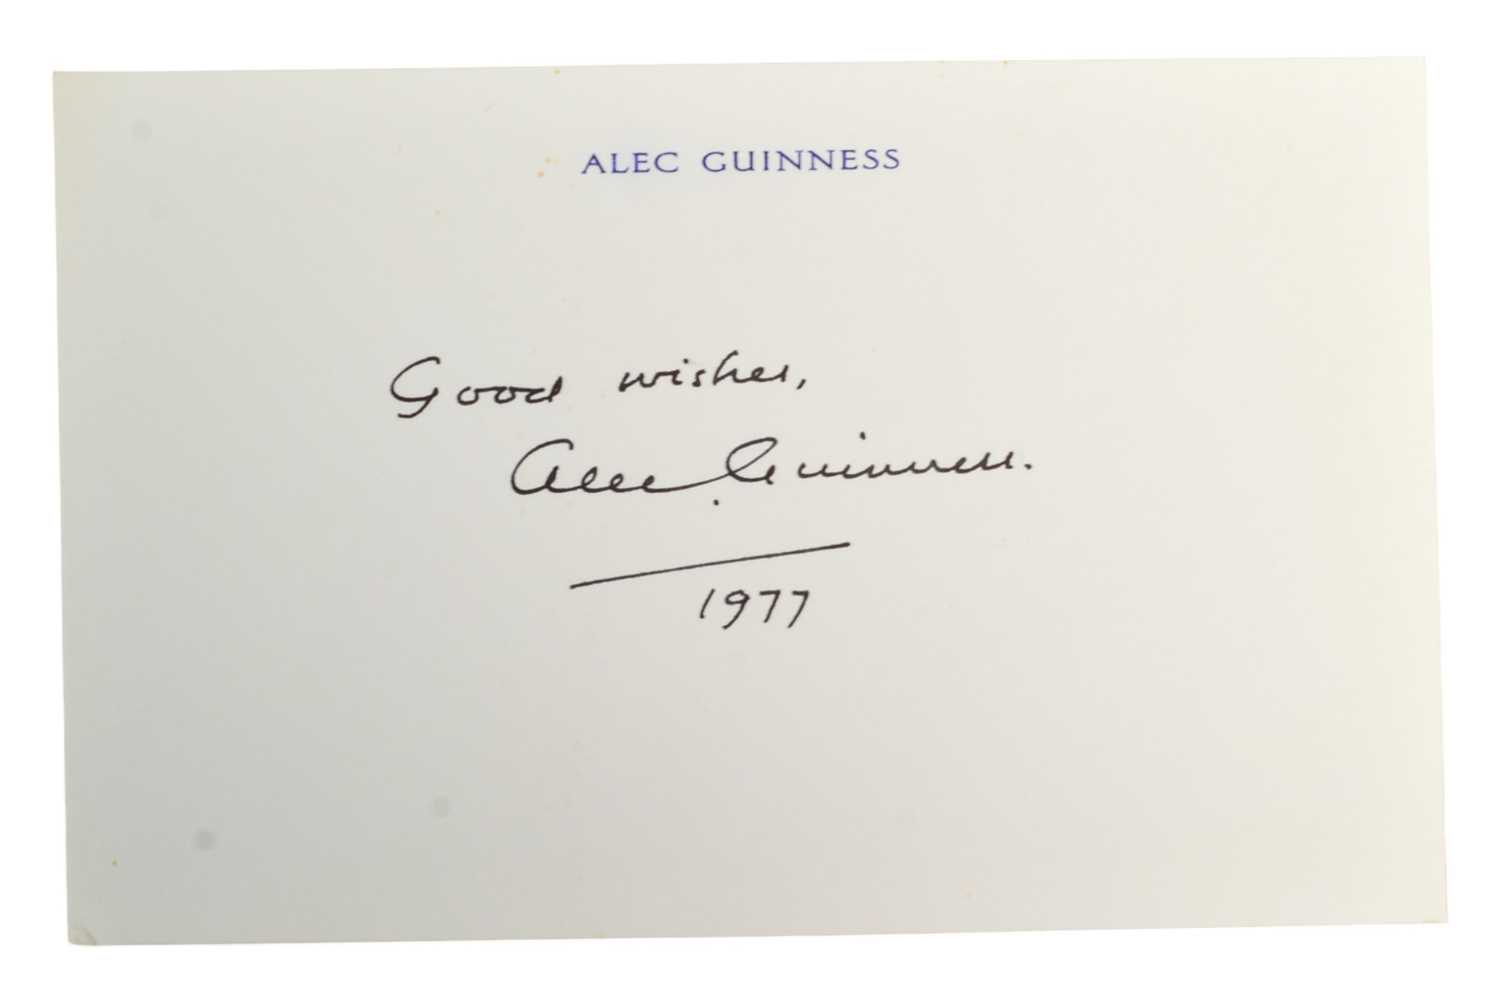 ALEC GUINNESS
Good wishes,
Alec Guinness.
1977